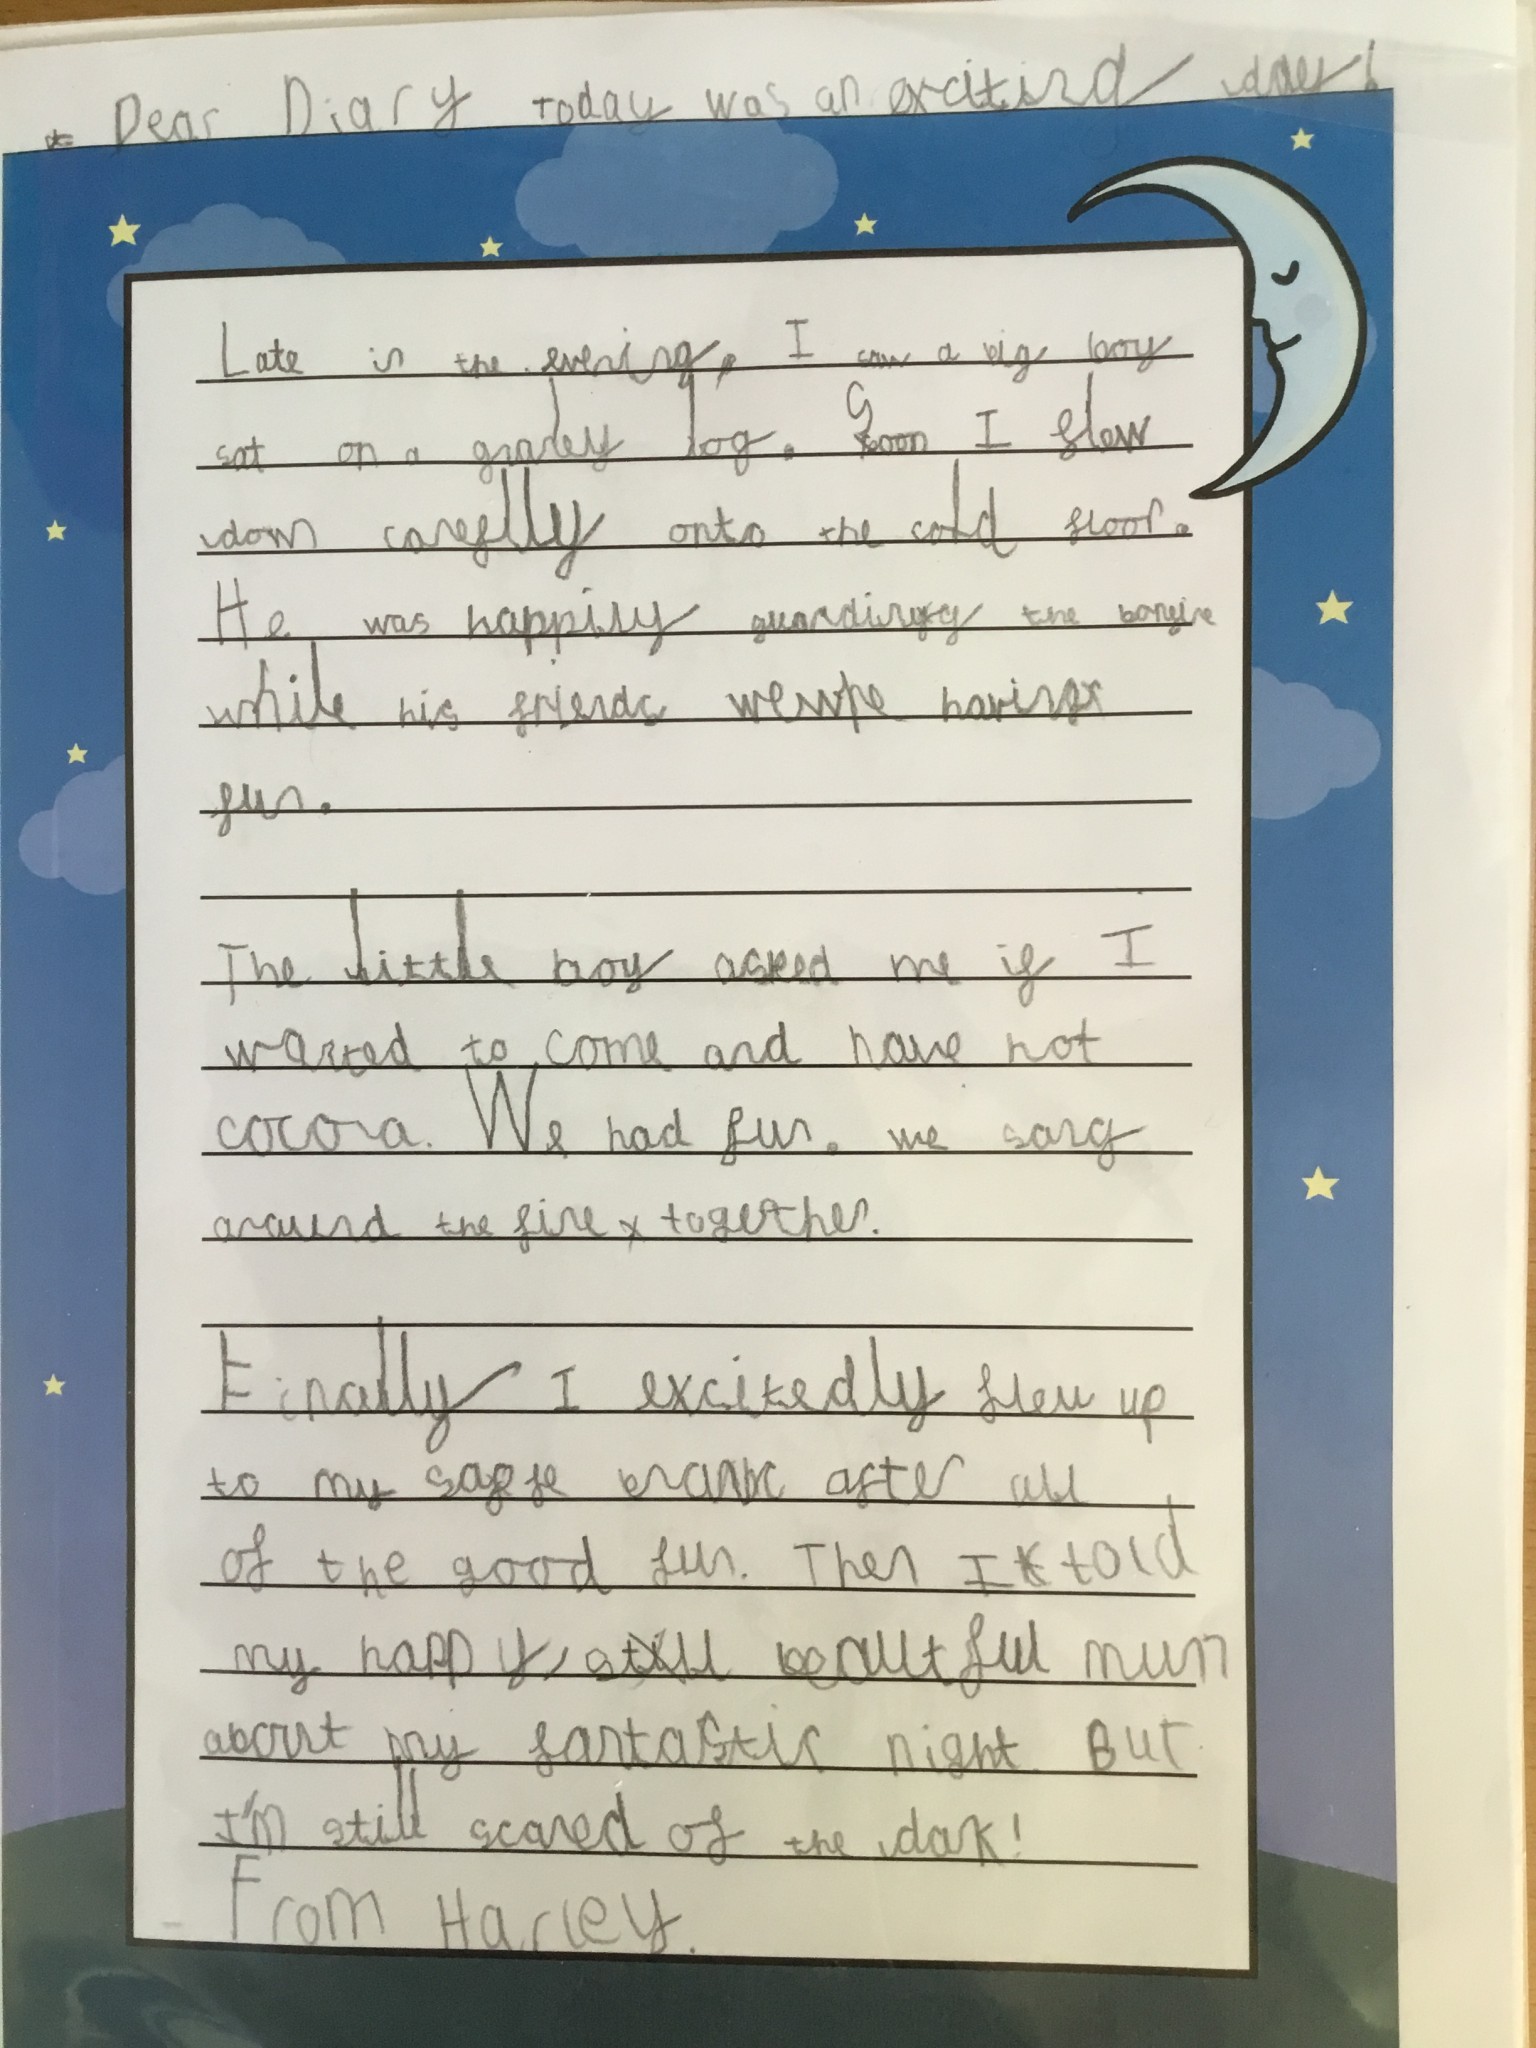 * Dear Diary today was an exciting day!
Late in the evening, I saw a big boy
sat on a gnarley log. Soon I flew
down careflly onto the cold floor.
He was happily guarding the bonfire
while his friends were having
fun.
The little boy asked me if I
wanted to come and have hot
cocoa. We had fun. we sang
around the fire together.
Finally I excitedly flew up
to my safe branc after all
of the good fun. Then I told
my happy, beautful mum
about my fantastic night. But
I'm still scared of the dark!
From Harley.